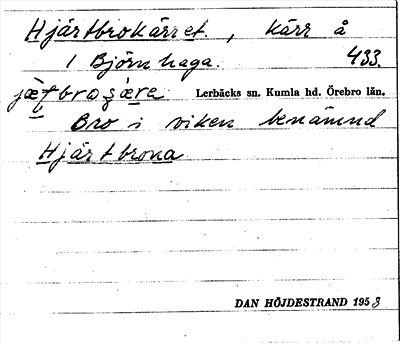 Hjärtbrokärret, kärr å
1 Björnhaga. 433.
jæ̀ṭbroṣæ̀re Lerbäcks sn. Kumla hd. Örebro län.
Bro i viken benämnd
Hjärtbrona
DAN HÖJDESTRAND 1958